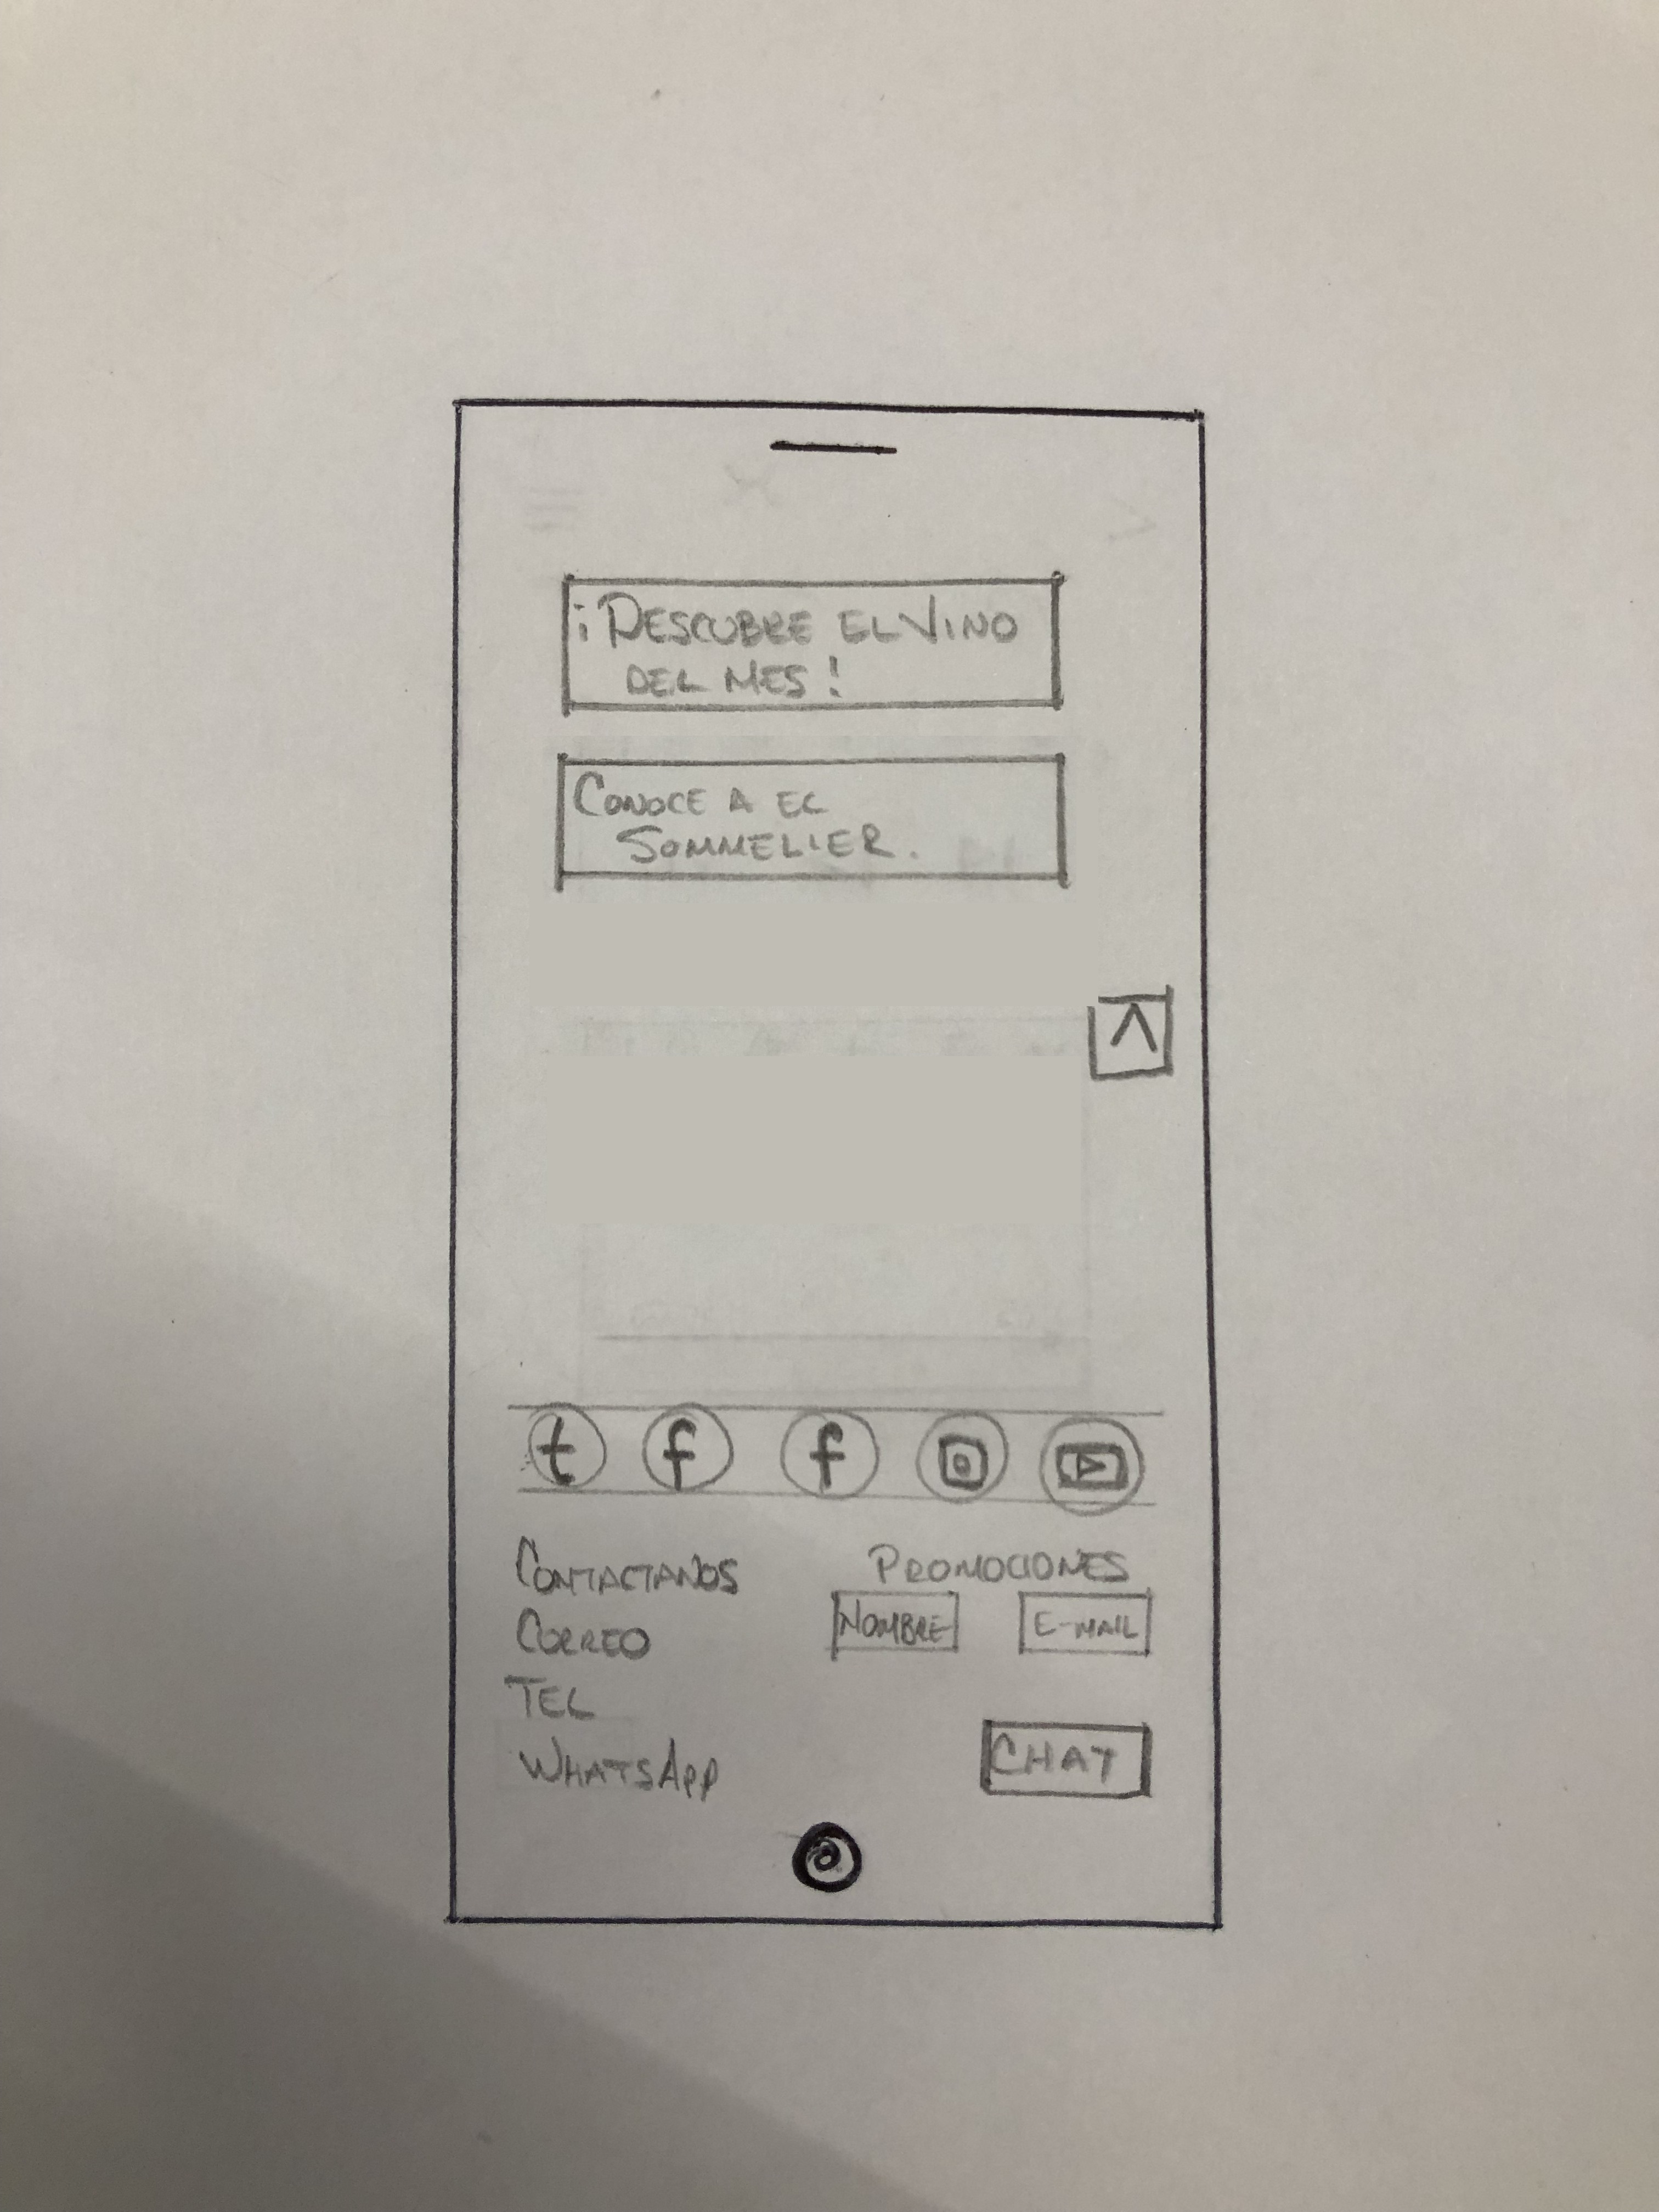 ¡DESCUBRE EL VINO
DEL MES!
CONOCE A EL
SOMMELIER.
t f f
CONTACTANOS
CORREO
TEL
WHATSAPP
PROMOCIONES
NOMBRE E-MAIL
CHAT